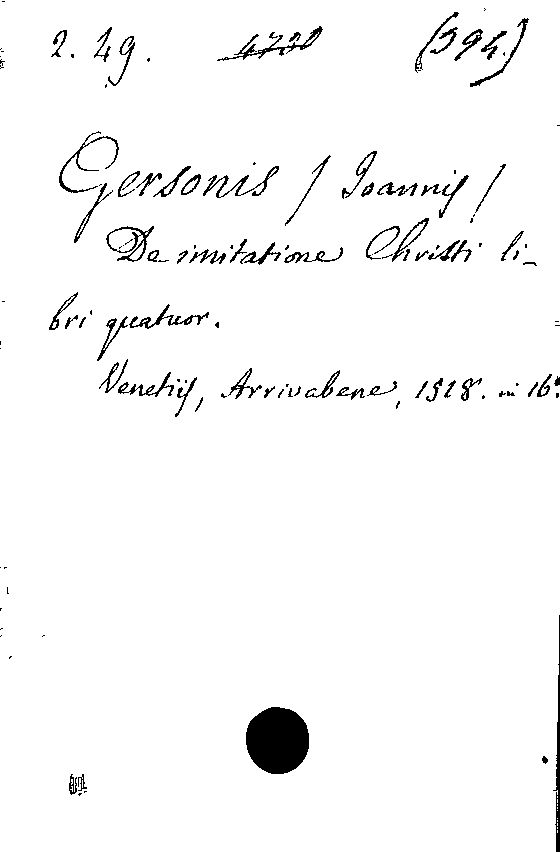 2. 49. 4730 (394.)
Gersonis / Joannis /
De imitatione Christi li-
bri quatuor.
Venetiis, Arrivabene, 1518. in 16°.